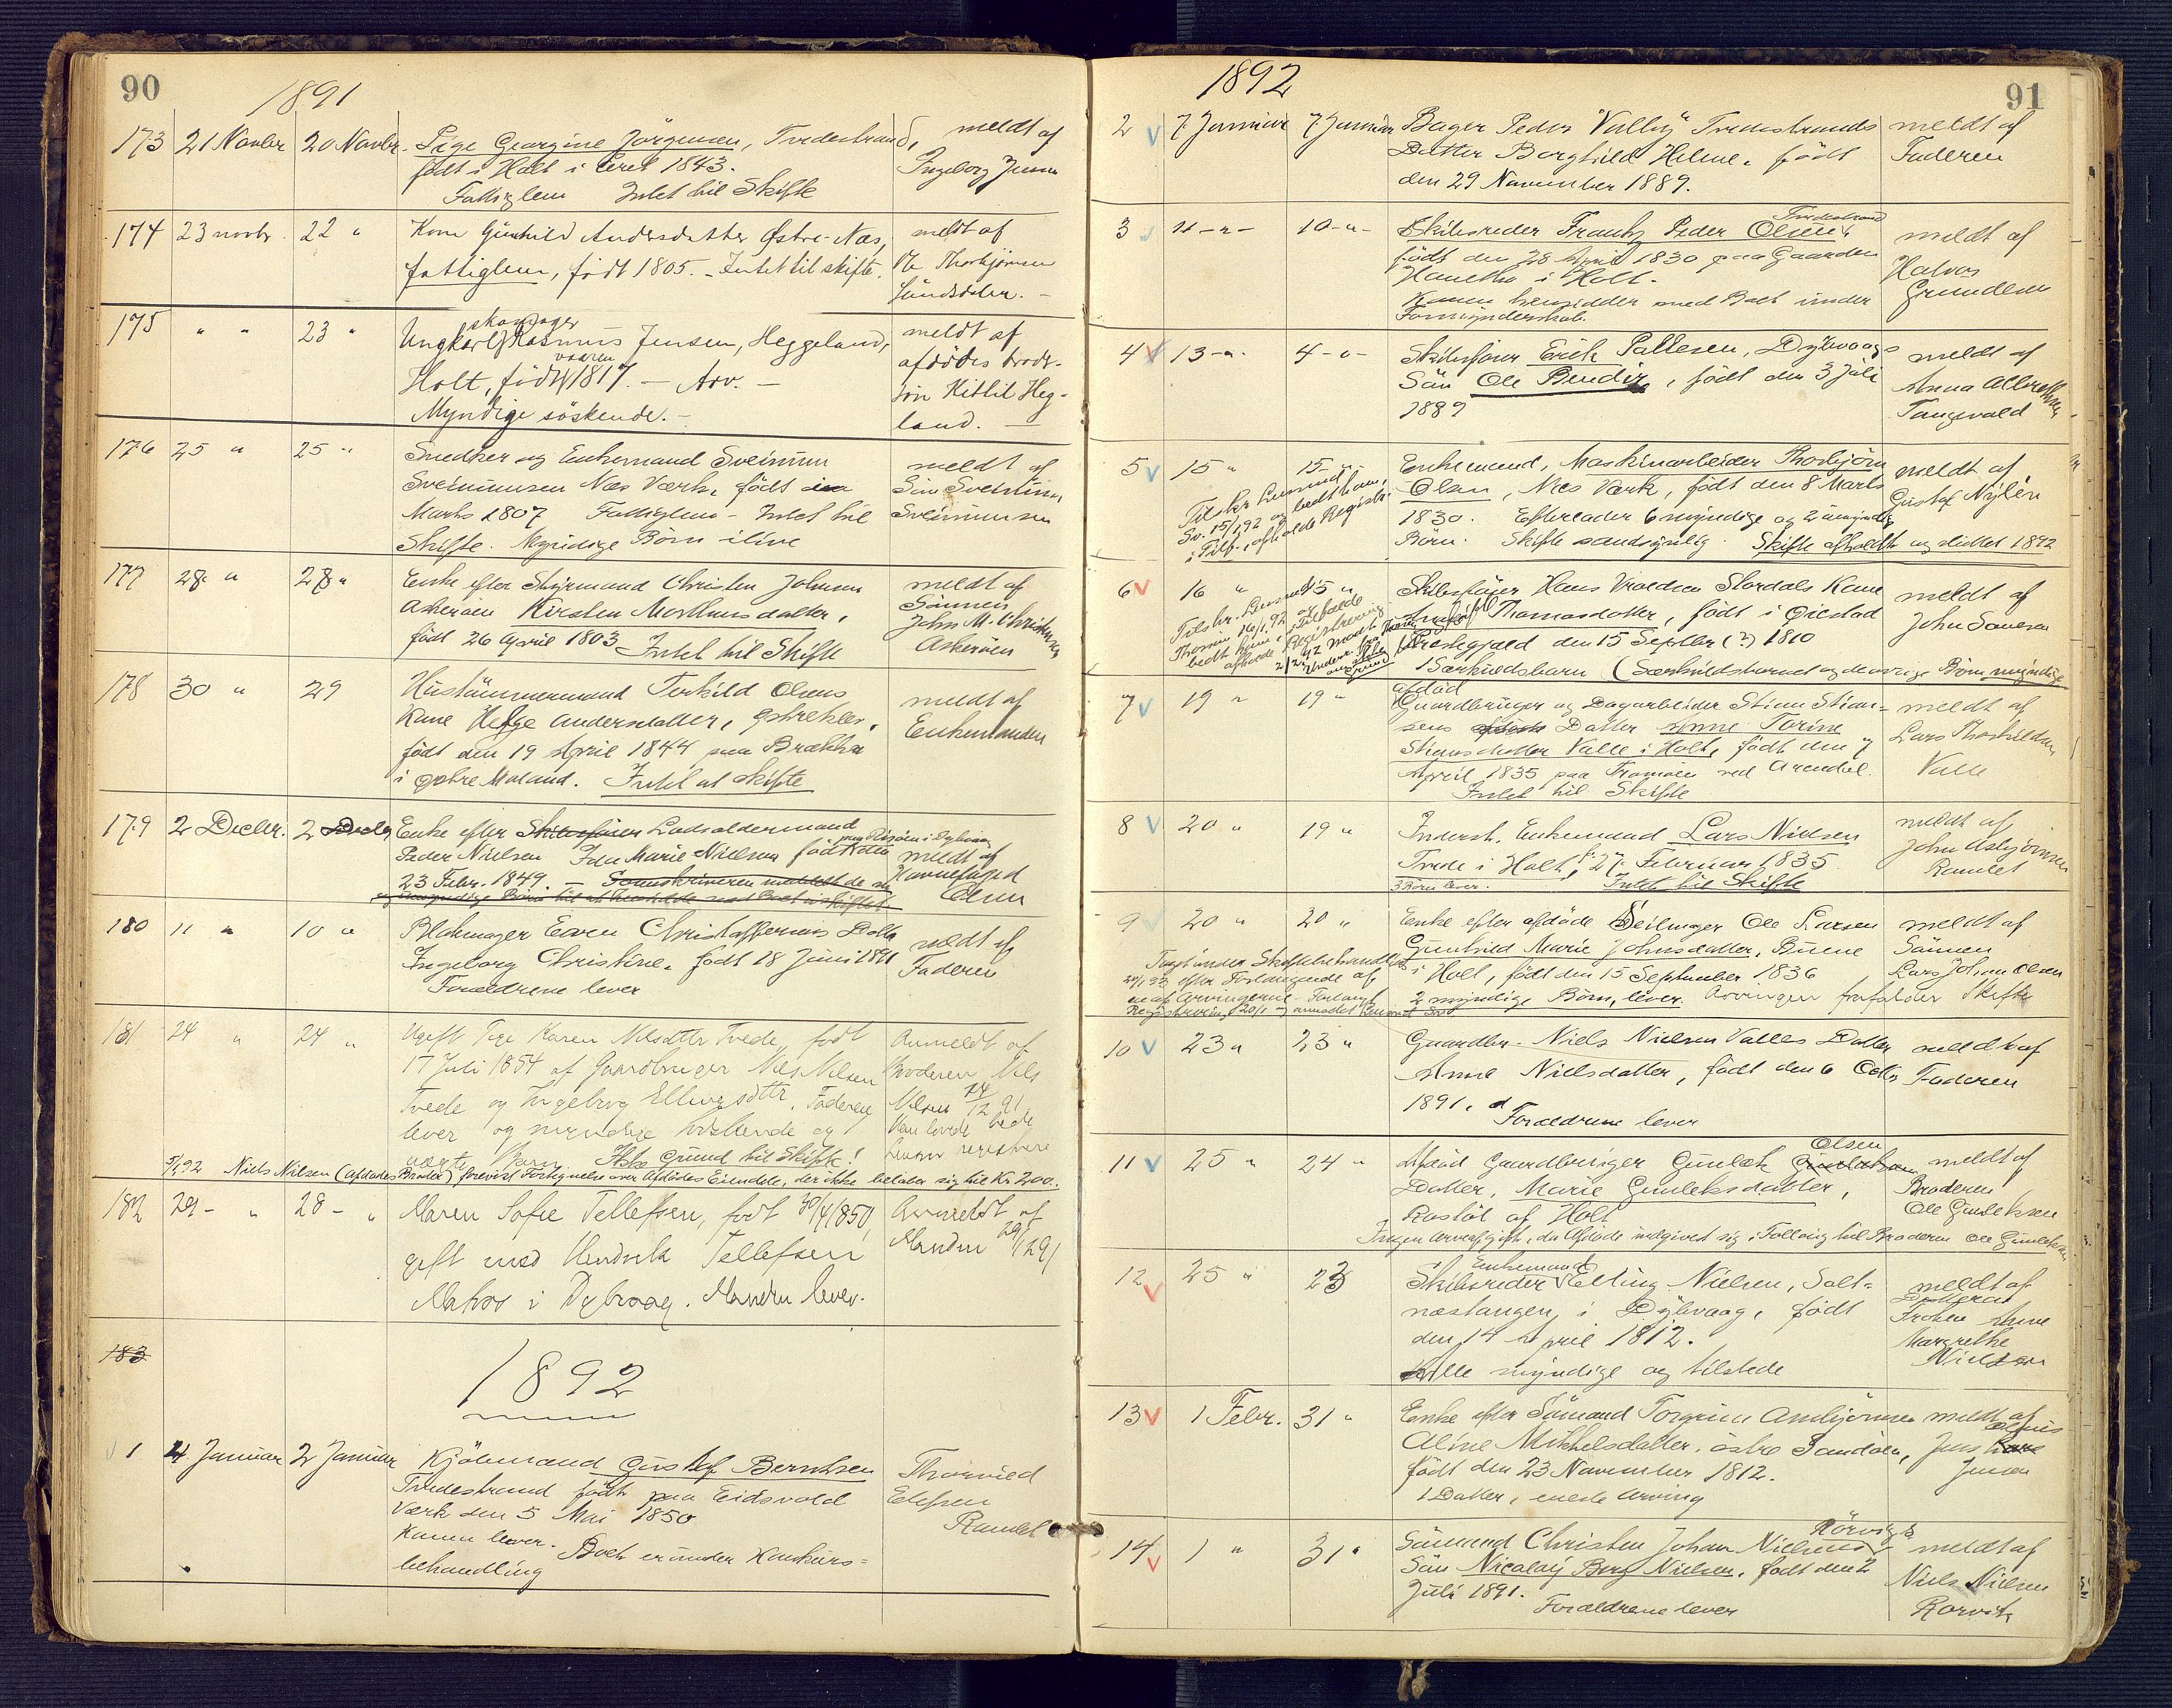 90
1891
173 21 Novbr 20 Novbr. Pige Georgine Jörgensen, Tvedestrand, meldt af
født i Holt i Aaret 1843. Ingeborg Jensen
Fattiglem Intet til Skifte
174 23 novbr. 22 " Kone Gunhild Andersdatter Østre-Næs, meldt af
fattiglem, født 1805. - Intet til skifte. Thorbjörnsen
175 " " 23 " Ungkarl skomager Rasmus Jensen, Heggeland, meldt af
Holt, født 1817. - Arv. - afdödes broder-
Myndige söskende. - sön Kittil Heg-
land. -
176 25 " 25 " Snedker og Enkemand Sveinum meldt af
Sveinumsen Næs Værk, født i Sön Sveinum
Marts 1807 Fattiglem - Intet til Sveinumsen
Skifte. Myndige Börn ilive
177 28 " 28 " Enke efter Styrmand Christen Johnsen meldt af
Askeröen Kirsten Mortensdatter, Sönnen
født 26 April 1803 Intet til Skifte John M. Christensen
Askeröen
178 30 " 29 Hustömmermand Terkild Olsens meldt af
Kone Helge Andersdatter, Enkemanden
født den 19 April 1844 paa Brække
i østre Moland. Intet at skifte
179 2 Decbr. 2 Decbr Enke efter Skibsfører Lodsoldermand
Peder Nielsen Ida Marie Nielsen født den meldt af
23 Febr. 1849. - Havnefoged
Olsen
180 11 " 10 " Blikmager Even Christoffersens Datter meldt af
Ingeborg Christine. født 18 Juni 1891 Faderen
Forældrene lever
181 24 " 24 " Ugift Pige Karen Nilsdttr Tvede, født Anmeldt af
17 Juli 1854 af Gaardbruger Nils Nilsen Broderen Nils
Tvede og Ingeborg Ellevsdttr. Faderen Nilsen 24/12 91.
lever og myndige Söskende og Han lovede bede
Intet Grund til Skifte!
5/1 92 Niels Nilsen (afdødes Broder) forevist Fortegnelse over Afdødes Eiendele, der ikke beløber sig til Kr. 200.
182 29 - " 28 - " Maren Sofie Tellefsen, født 30/4 1850, Anmeldt af
gift med Hendrik Tellefsen Manden 29/12 91
i Dybvaag. Manden lever.
183
1892
1 4 Januar 2 Januar Kjöbmand Gustaf Berntsen Thorvald
Tvedestrand født paa Eidsvold Ellefsen
Værk den 5 Mai 1850 Ramdal
Konen lever. Boet er under Konkurs=
behandling
1892
91
2 7 Januar 7 Januar Bager Peder Vallöy Tvedestrands meldt af
Datter Borghild Helene. født Faderen
den 29 November 1889.
3 11 - " - 10 - " - Skibsreder Frantz Peder Olsen, Tvedestrand meldt af
født den 28 April 1830 paa Gaarden Halvor
i Holt. Gundersen
Konen hensidder med Boet under
Formynderskab.
4 13 - " - 4 - " - Skibsfører Erik Pallesen, Dybvaag meldt af
Sön Ole Bendix, født den 3 Juli Anna Albrethsen
1889 Tangvald
5 15 " 15 - " Enkemand, Maskinarbeider Thorbjörn meldt af
Olsen, Næs Værk, født den 8 Marts Gustaf Nylén
1830. Efterlader 6 myndige og 2 umyndige
Börn. Skifte sandsynlig. Skifte afholdt og sluttet 1892
Tilskr. Lensmd.
Sv. 15/1 92 og bedt ham,
i Tilf., afholde Registr.
6 16 " 15 " Skibsfører Hans Vroldsen Stordals Kone meldt af
Thomasdatter, født i Øiestad John Larsen
Præstegjæld den 15 Septbr (?) 1810
1 Særkuldsbarn (Særkuldsbarnet og de øvrige Börn myndige
7 19 " 19 " afdød Gaardbruger og Dagarbeider Stian Stian= meldt af
sens Datter Anne Torine Lars Thorkildsen
Stiansdatter Valle i Holt, født den 7 Valle
April 1835 paa Tromöen ved Arendal.
Intet til Skifte
8 20 " 19 " Inderst. Enkemand Lars Nielsen meldt af
Tvede i Holt, f. 27 Februar 1835 John Asbjörnsen
3 Börn lever. Intet til Skifte Ramdal
9 20 " 20 " Enke efter afdöde Seilmager Ole Larsen meldt af
Gunhild Marie Johnsdatter, Buene Sönnen
i Holt, født den 15 September 1836 Lars Johan Olsen
2 myndige Börn, lever. Arvingen frafalder Skifte
10 23 " 23 " Gaardbr. Niels Nielsen Valles Datter meldt af
Anna Nielsdatter, født den 6 Octbr Faderen
1891.
Forældrene lever
11 25 " 24 " Afdöd Gaardbruger Gunlek Olsen meldt af
Datter, Marie Gunleksdatter, Broderen
af Holt Ole Gunleksen
Ingen Arveafgift, da Afdöde indgivet sig i Follaug til Broderen Ole Gunleksen
12 25 " 23 Skibsreder Enkemand Elling Nielsen, Salt= meldt af
næstangen, i Dybvaag, født Datteren
den 14 April 1812. Fröken Anne
Margrethe
Alle myndige og tilstede Nielsen
13 1 Febr. 31 " Enke efter Sömand Torgrim Ambjörnsen meldt af
Aline Mikkelsdatter, östre Sandöen, Jens
født den 23 November 1812. Jensen
1 Datter, eneste Arving
14 1 " 31 " Sömand Christen Johan Nielsens Rörvigs meldt af
Sön Nicolay Berg Nielsen, født den 2 Niels Nielsen
Juli 1891. Rorvik
Forældrene lever